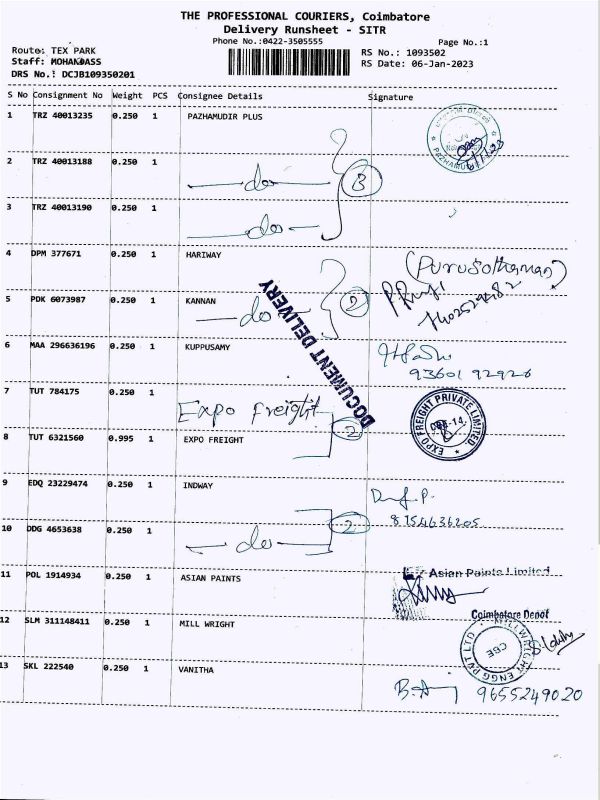 THE PROFESSIONAL COURIERS, Coimbatore
Delivery Runsheet - SITR
Phone No.:0422-3505555 Page No.:1
Route: TEX PARK RS No.: 1093502
Staff: MOHANDASS RS Date: 06-Jan-2023
DRS No.: DCJB109350201
S No Consignment No Weight PCS Consignee Details Signature
1 TRZ 40013235 0.250 1 PAZHAMUDIR PLUS
2 TRZ 40013188 0.250 1
do 3
3 TRZ 40013190 0.250 1
do
4 DPM 377671 0.250 1 HARIWAY
(Purusothaman)
5 PDK 6073987 0.250 1 KANNAN
do 2
DOCUMENT DELIVERY
6 MAA 296636196 0.250 1 KUPPUSAMY
93601 92926
7 TUT 784175 0.250 1
Expo freight 2
EXPO FREIGHT PRIVATE LIMITED.
8 TUT 6321560 0.995 1 EXPO FREIGHT
9 EDQ 23229474 0.250 1 INDWAY
8754636205
10 DDG 4653638 0.250 1
do 2
11 POL 1914934 0.250 1 ASIAN PAINTS
Asian Paints Limited
Coimbatore Depot
12 SLM 311148411 0.250 1 MILL WRIGHT
MILLWRIGHT ENGG PVT LTD
CBE
13 SKL 222540 0.250 1 VANITHA
9655249020